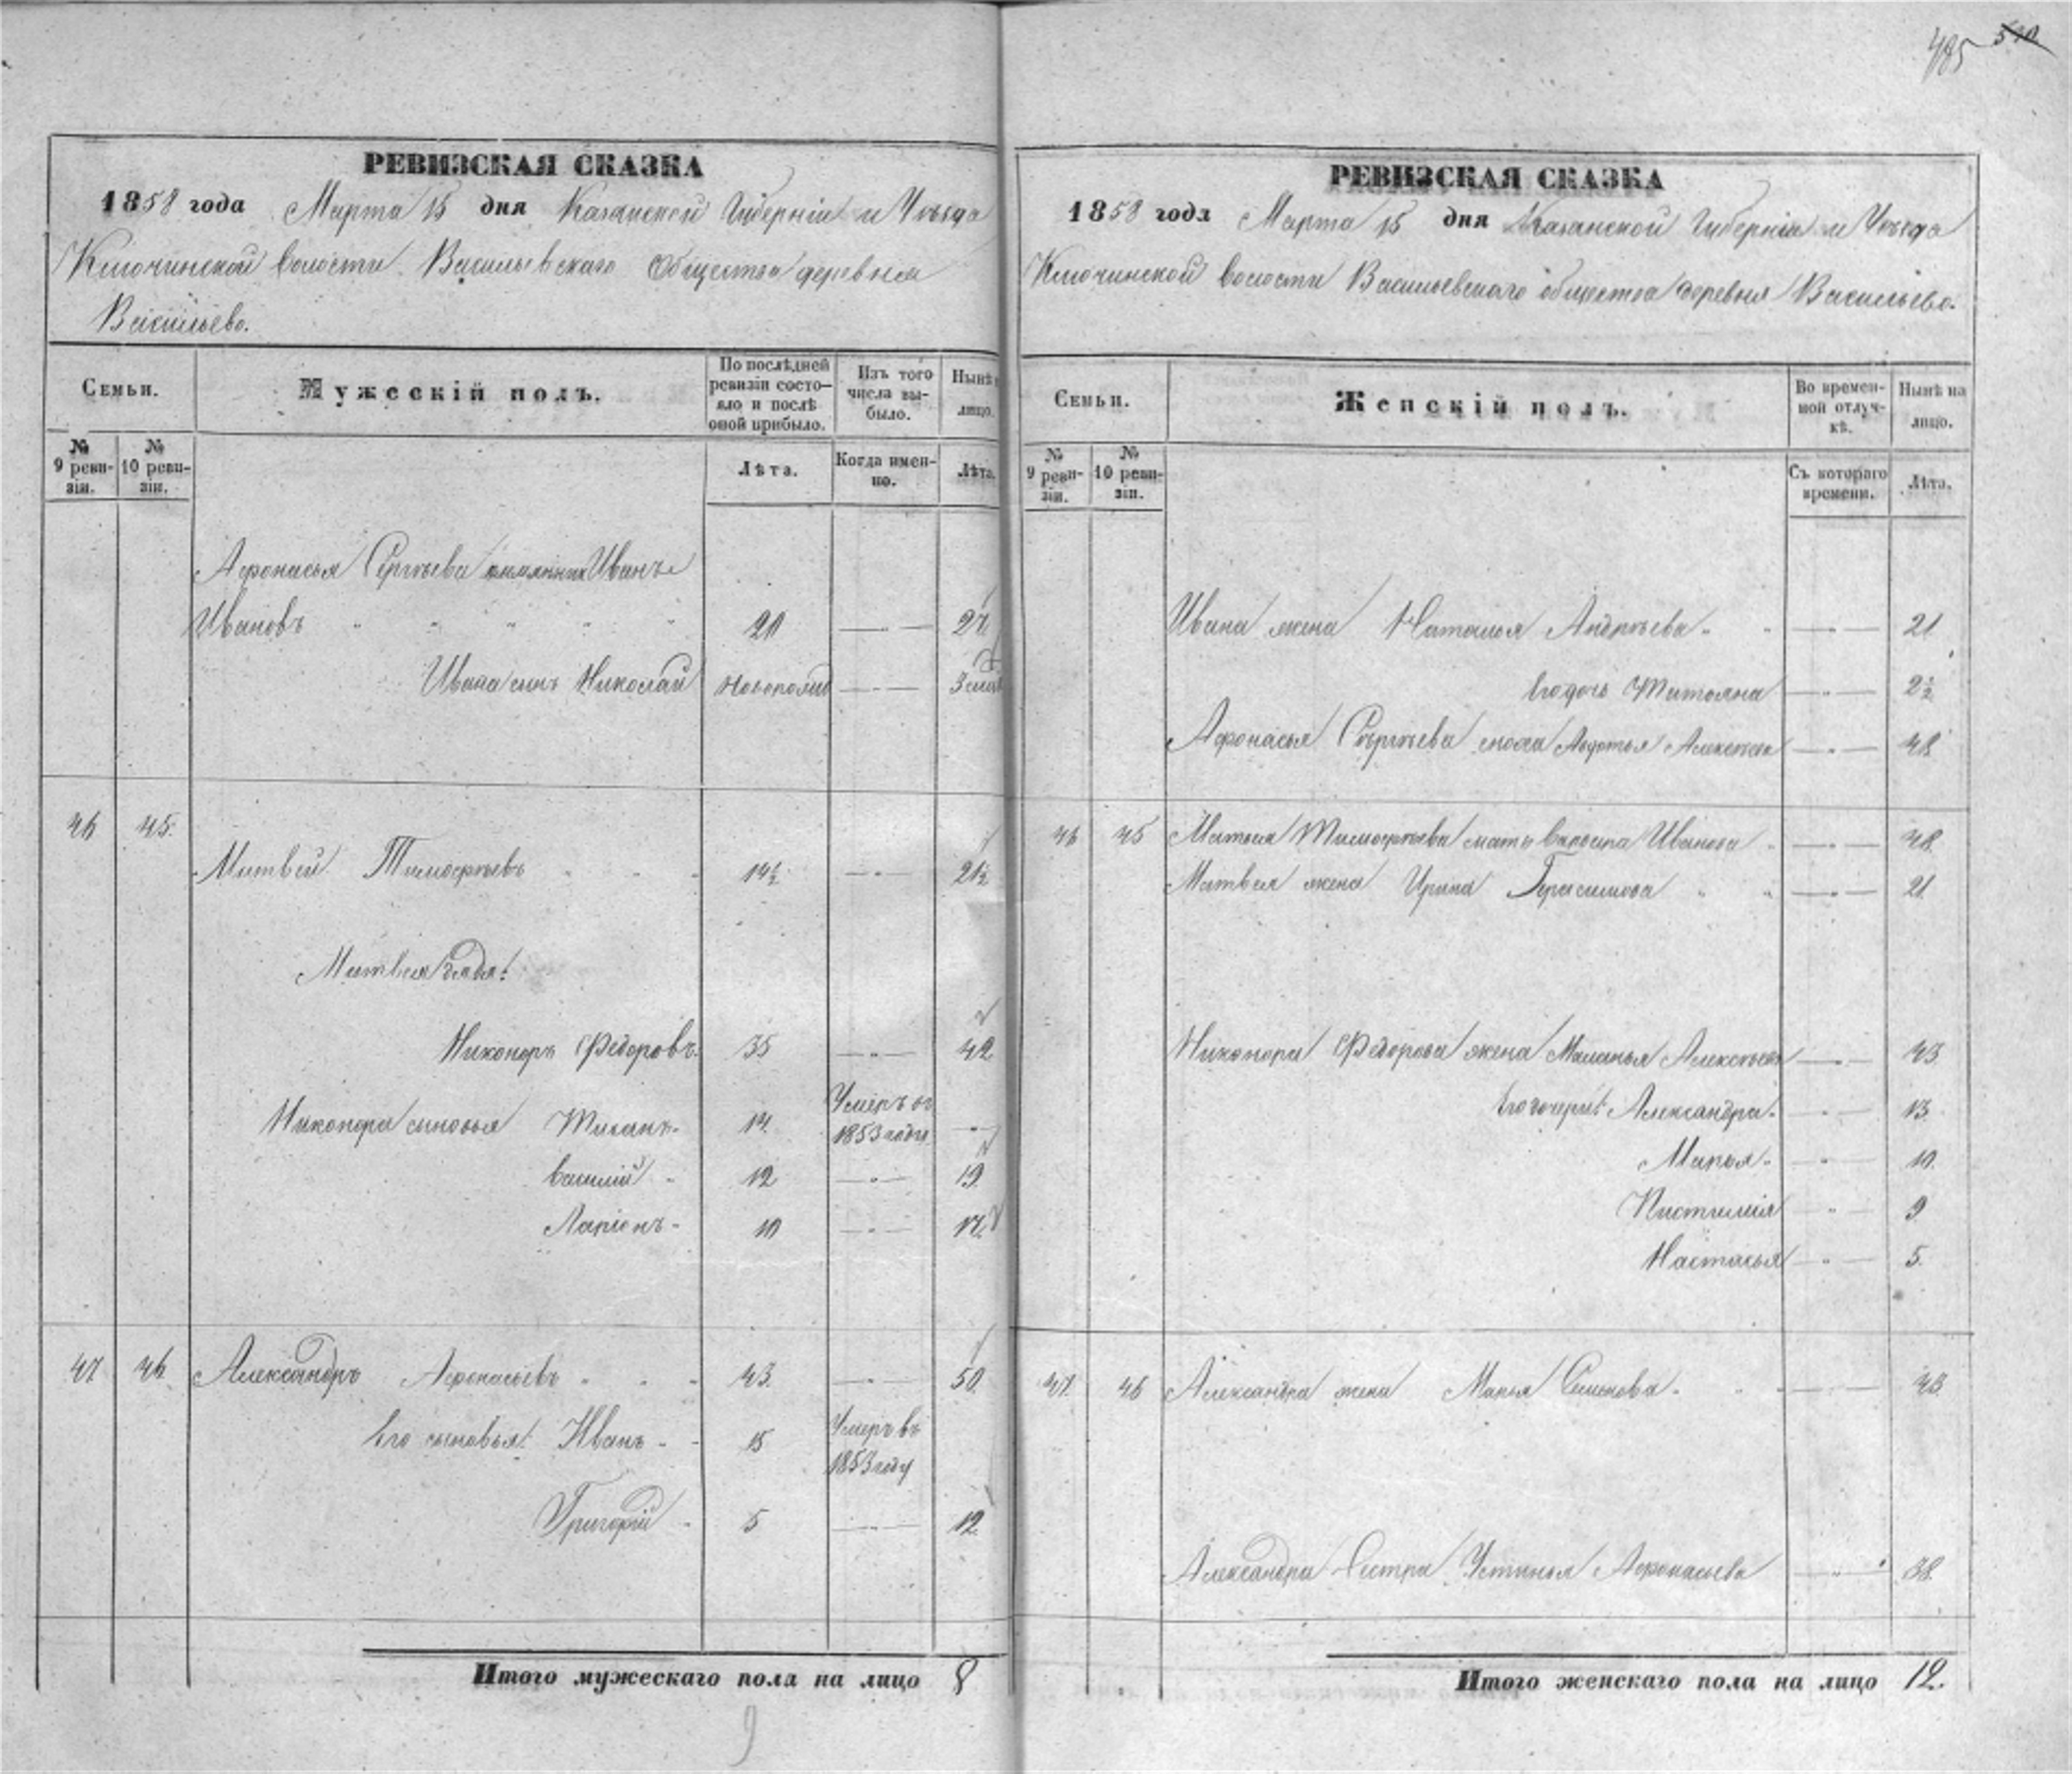 485 510
РЕВИЗСКАЯ СКАЗКА
1858 года Марта 15 дня Казанской Губерніи и Уѣзда
Ключинской волости Васильевскаго Общества деревня
Васильево.
Семьи.
Мужескій полъ.
По послѣдней ревизіи состояло и послѣ оной прибыло.
Изъ того числа выбыло.
Нынѣ
лицо.
№ 9 ревизіи.
№ 10 ревизіи.
Лѣта.
Когда именно.
Лѣта.
Афонасья Сергѣева Иванъ
Ивановъ " " " " " 20 —"— 27
Ивана сынъ Николай —"—
46 45. Матвей Тимофѣевъ " " " 14½ —"— 21½
Матвея дядя:
Никоноръ Федоровъ. 35 —"— 42
Никонора сыновья 14. Умеръ въ 1853 году —"—
Василій - 12 —"— 19.
Ларіонъ - 10 —"— 17.
47 46. Александръ Афонасьевъ " " " 43. —"— 50.
Его сыновья: Иванъ - - 15 Умеръ въ 1853 году
Григорій - 5 —"— 12.
Итого мужескаго пола на лицо 8
9
РЕВИЗСКАЯ СКАЗКА
1858 года Марта 15 дня Казанской Губерніи и Уѣзда
Ключинской волости Васильевскаго общества деревня Васильево.
Семьи.
Женскій полъ.
Во временной отлучкѣ.
Нынѣ на лицо.
№ 9 ревизіи.
№ 10 ревизіи.
Съ котораго времени.
Лѣта.
Ивана жена Наталья Андрѣева - " —"— 21
Его дочь Татьяна —"— 2½
Афонасья Сергѣева Авдотья Алексѣева —"— 48
46 45 Матвея Тимофѣева мать Иванова " —"— 48.
Матвея жена Ирина Герасимова " " —"— 21.
Никонора Федорова жена Маланья Алексѣева —"— 43.
Его дочери: Александра. —"— 13.
Марья. —"— 10.
—"— 9
Настасья —"— 5.
47. 46 Александра жена Марья Семенова - " " —"— 43.
Александра Сестра Устинья Афонасьева —"— 38.
Итого женскаго пола на лицо 12.